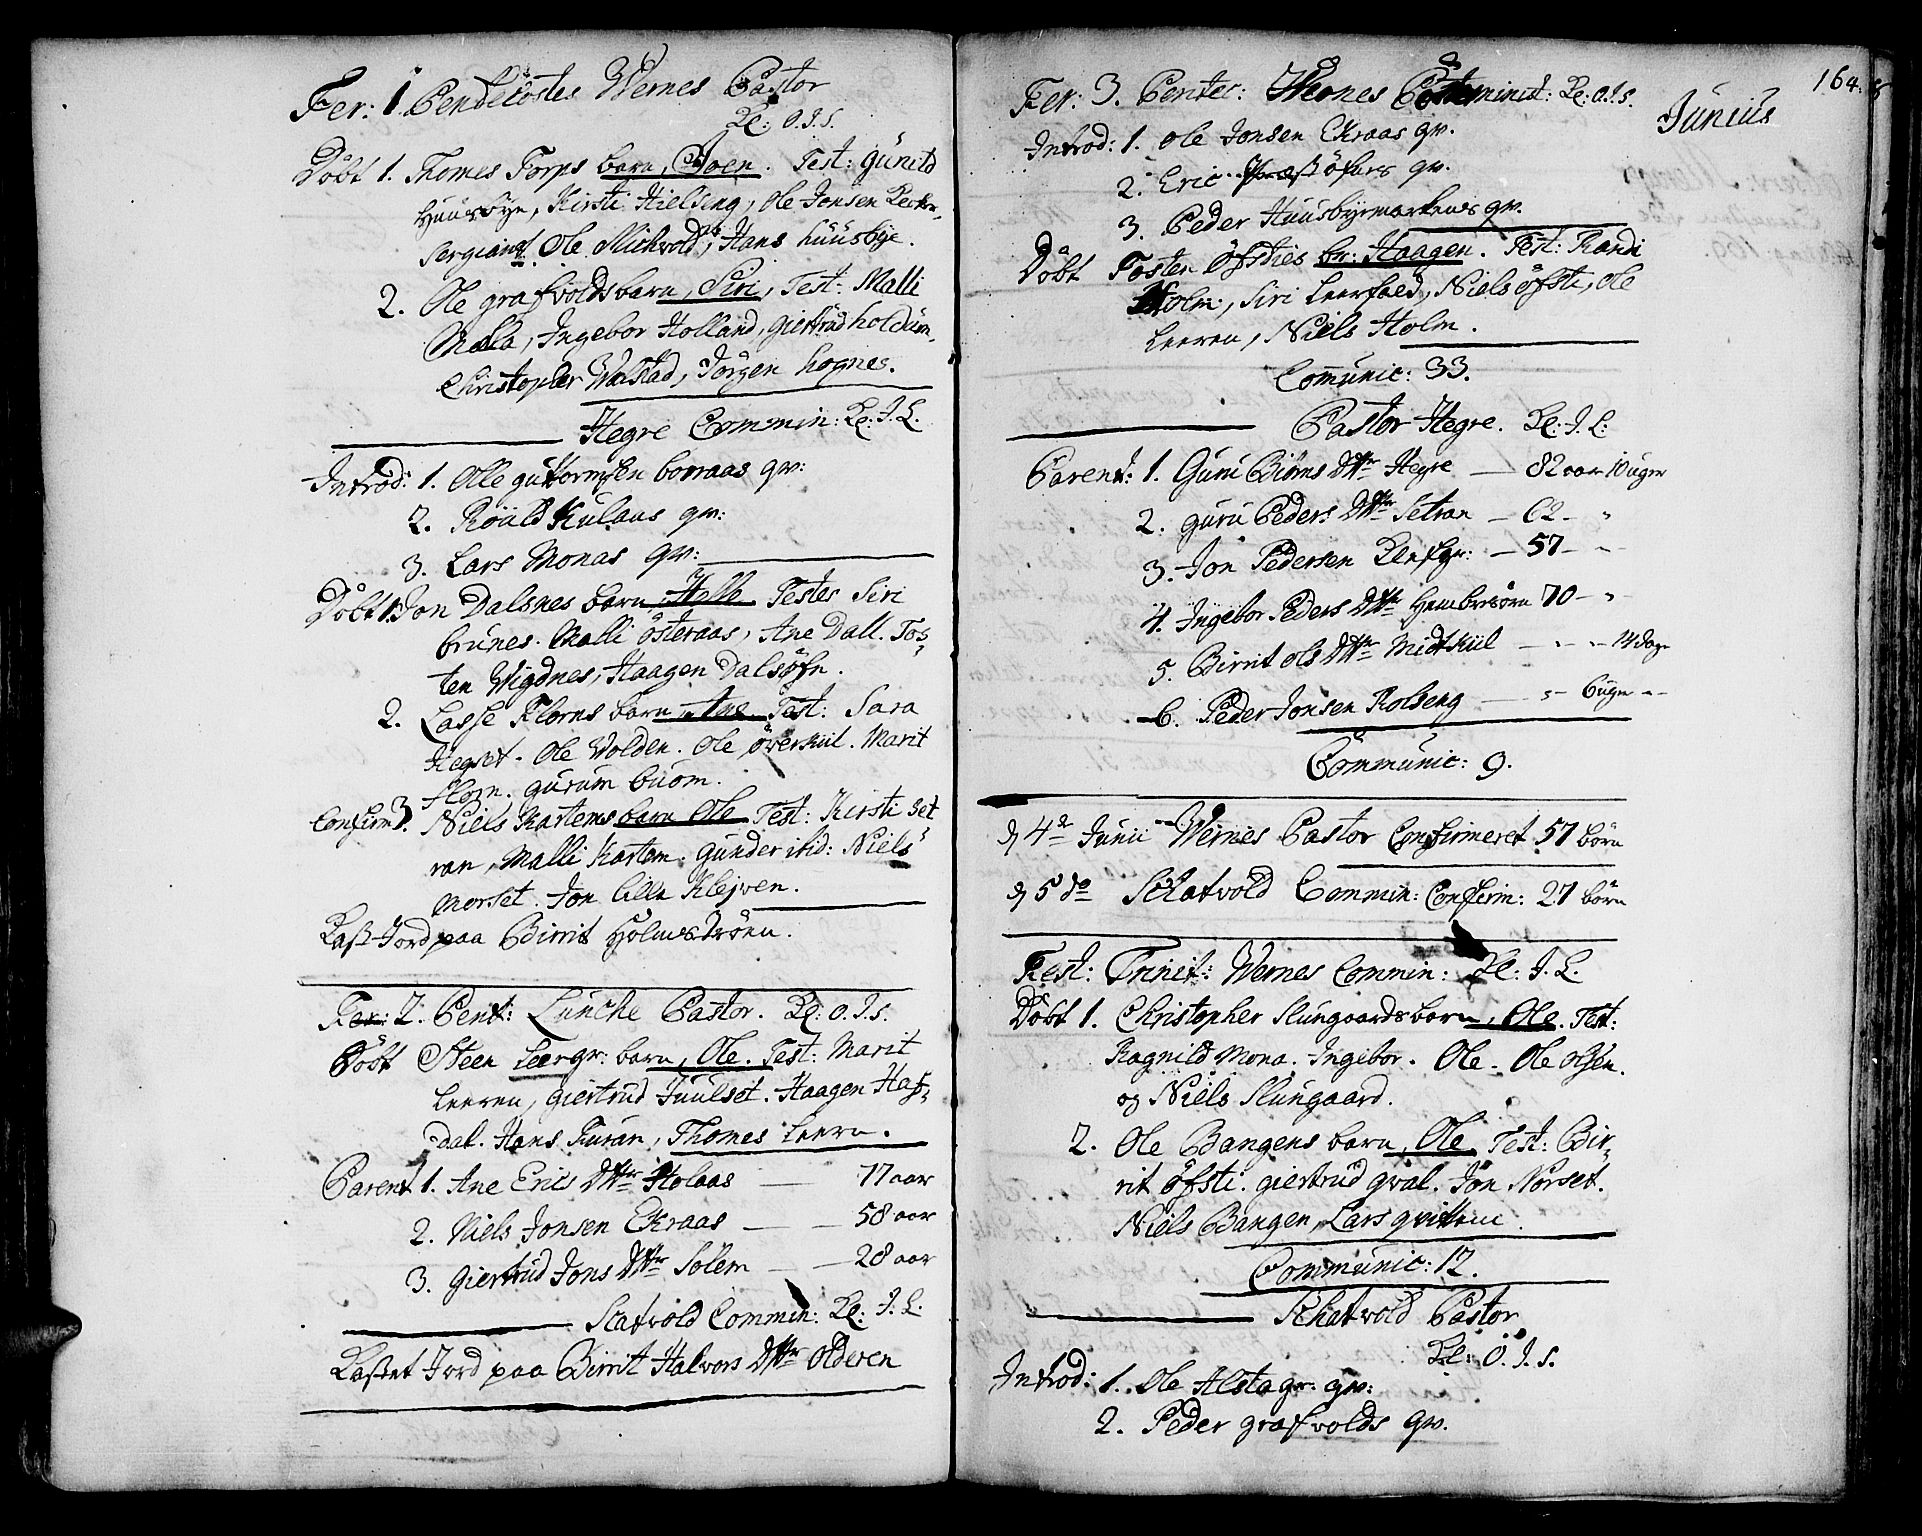 Fer: 1. Pendecostes Wernes Pastor
Kl: O.J.S.
Döbt 1. Thomes Forps barn, Joen. Test: Gunild
Huusbye, Kirsti Hielseng, Ole Jonsen
Sergiant. Ole Michvold, Hans huusbye.
2. Ole grafvolds barn, Siri, Test: Malli
Mælla, Ingebor Holland, giertrud
Christopher Walstad, Jörgen hognes.
Hegre Commin: Kl: J.L.
Introd: 1. Olle guttormsen borraas qv:
2. Roald Kulaas qv:
3. Lars Monas qv:
Döbt 1. Jon Dalsnes barn, Testes Siri
brunes. Malli österaas, Ane Dall. Tos-
ten Wigdnes, Haagen Dalsöfn.
2. Lasse Florns barn, Ane Test: Sara
Hegset. Ole Wolden. Ole överkiil. Marit
Florn. gurum buom.
Confirm 3. Niels Kartems barn Ole Test: Kirsti Set
ran, Malli Kartem. Gunder ibid: Niels
Morset. Jon lille Klejven.
Kast Jord paa Birrit Holmsdröen.
Fer: 2. Pent: Lunche Pastor. Kl: O.J.S.
Döbt Steen leergr: barn, Ole. Test: Marit
Leeren, giertrud Juulset. Haagen Has-
dal. Hans Ruran, Thomes Leern.
Parent 1. Ane Erics Dttr Holaas — 77 aar
2. Niels Jonsen Ekraas — 58 aar
3. Giertrud Jons Dttr Solem — 28 aar
Scatvold Commin: Kl: J.L.
Kastet Jord paa Birrit Halvors Dttr Olderen
164
Junius
Fer: 3. Pentec: Wernes Comminist: Kl: O.J.S.
Introd: 1. Ole Jonsen Ekraas qv.
2. Eric qv.
3. Peder Huusbymarkens qv.
Döbt Tosten Öfsties br: Haagen. Test: Randi
Holm, Siri Leerfald, Niels öfsti, Ole
Leeren, Niels Holm.
Communic: 33.
Pastor Hegre. Kl: J.L:
Parent: 1. Guru Biörns Dttr Hegre — 82 aar 10 uger
2. guru Peders Dttr Setran — 62 - "
3. Jon Pedersen — 57 - -
4. Ingebor Peders Dttr 70 - "
5. Birrit Ols Dttr Midtkiil — - - 14 dage
6. Peder Jonsen Rolseng — - 6 uger - -
Communic: 9.
d 4de Junii Wernes Pastor Confirmeret 57 börn
d 5 do Schatvold Commin: Confirm: 27 börn
Fest: Trinit: Wernes Commin: Kl: J.L.
Döbt 1. Christopher Slungaards barn, Ole. Test:
Ragnild Mona. Ingebor. Ole. Ole Olsen.
og Niels Slungaard.
2. Ole Bangens barn, Ole Test: Bir-
rit öfsti. giertrud qval. Jon Norset.
Niels Bangen, Lars
Communic: 12.
Schatvold Pastor
Kl: O.J.S.
Introd: 1. Ole Alstagr: qv:
2. Peder grafvolds qv.